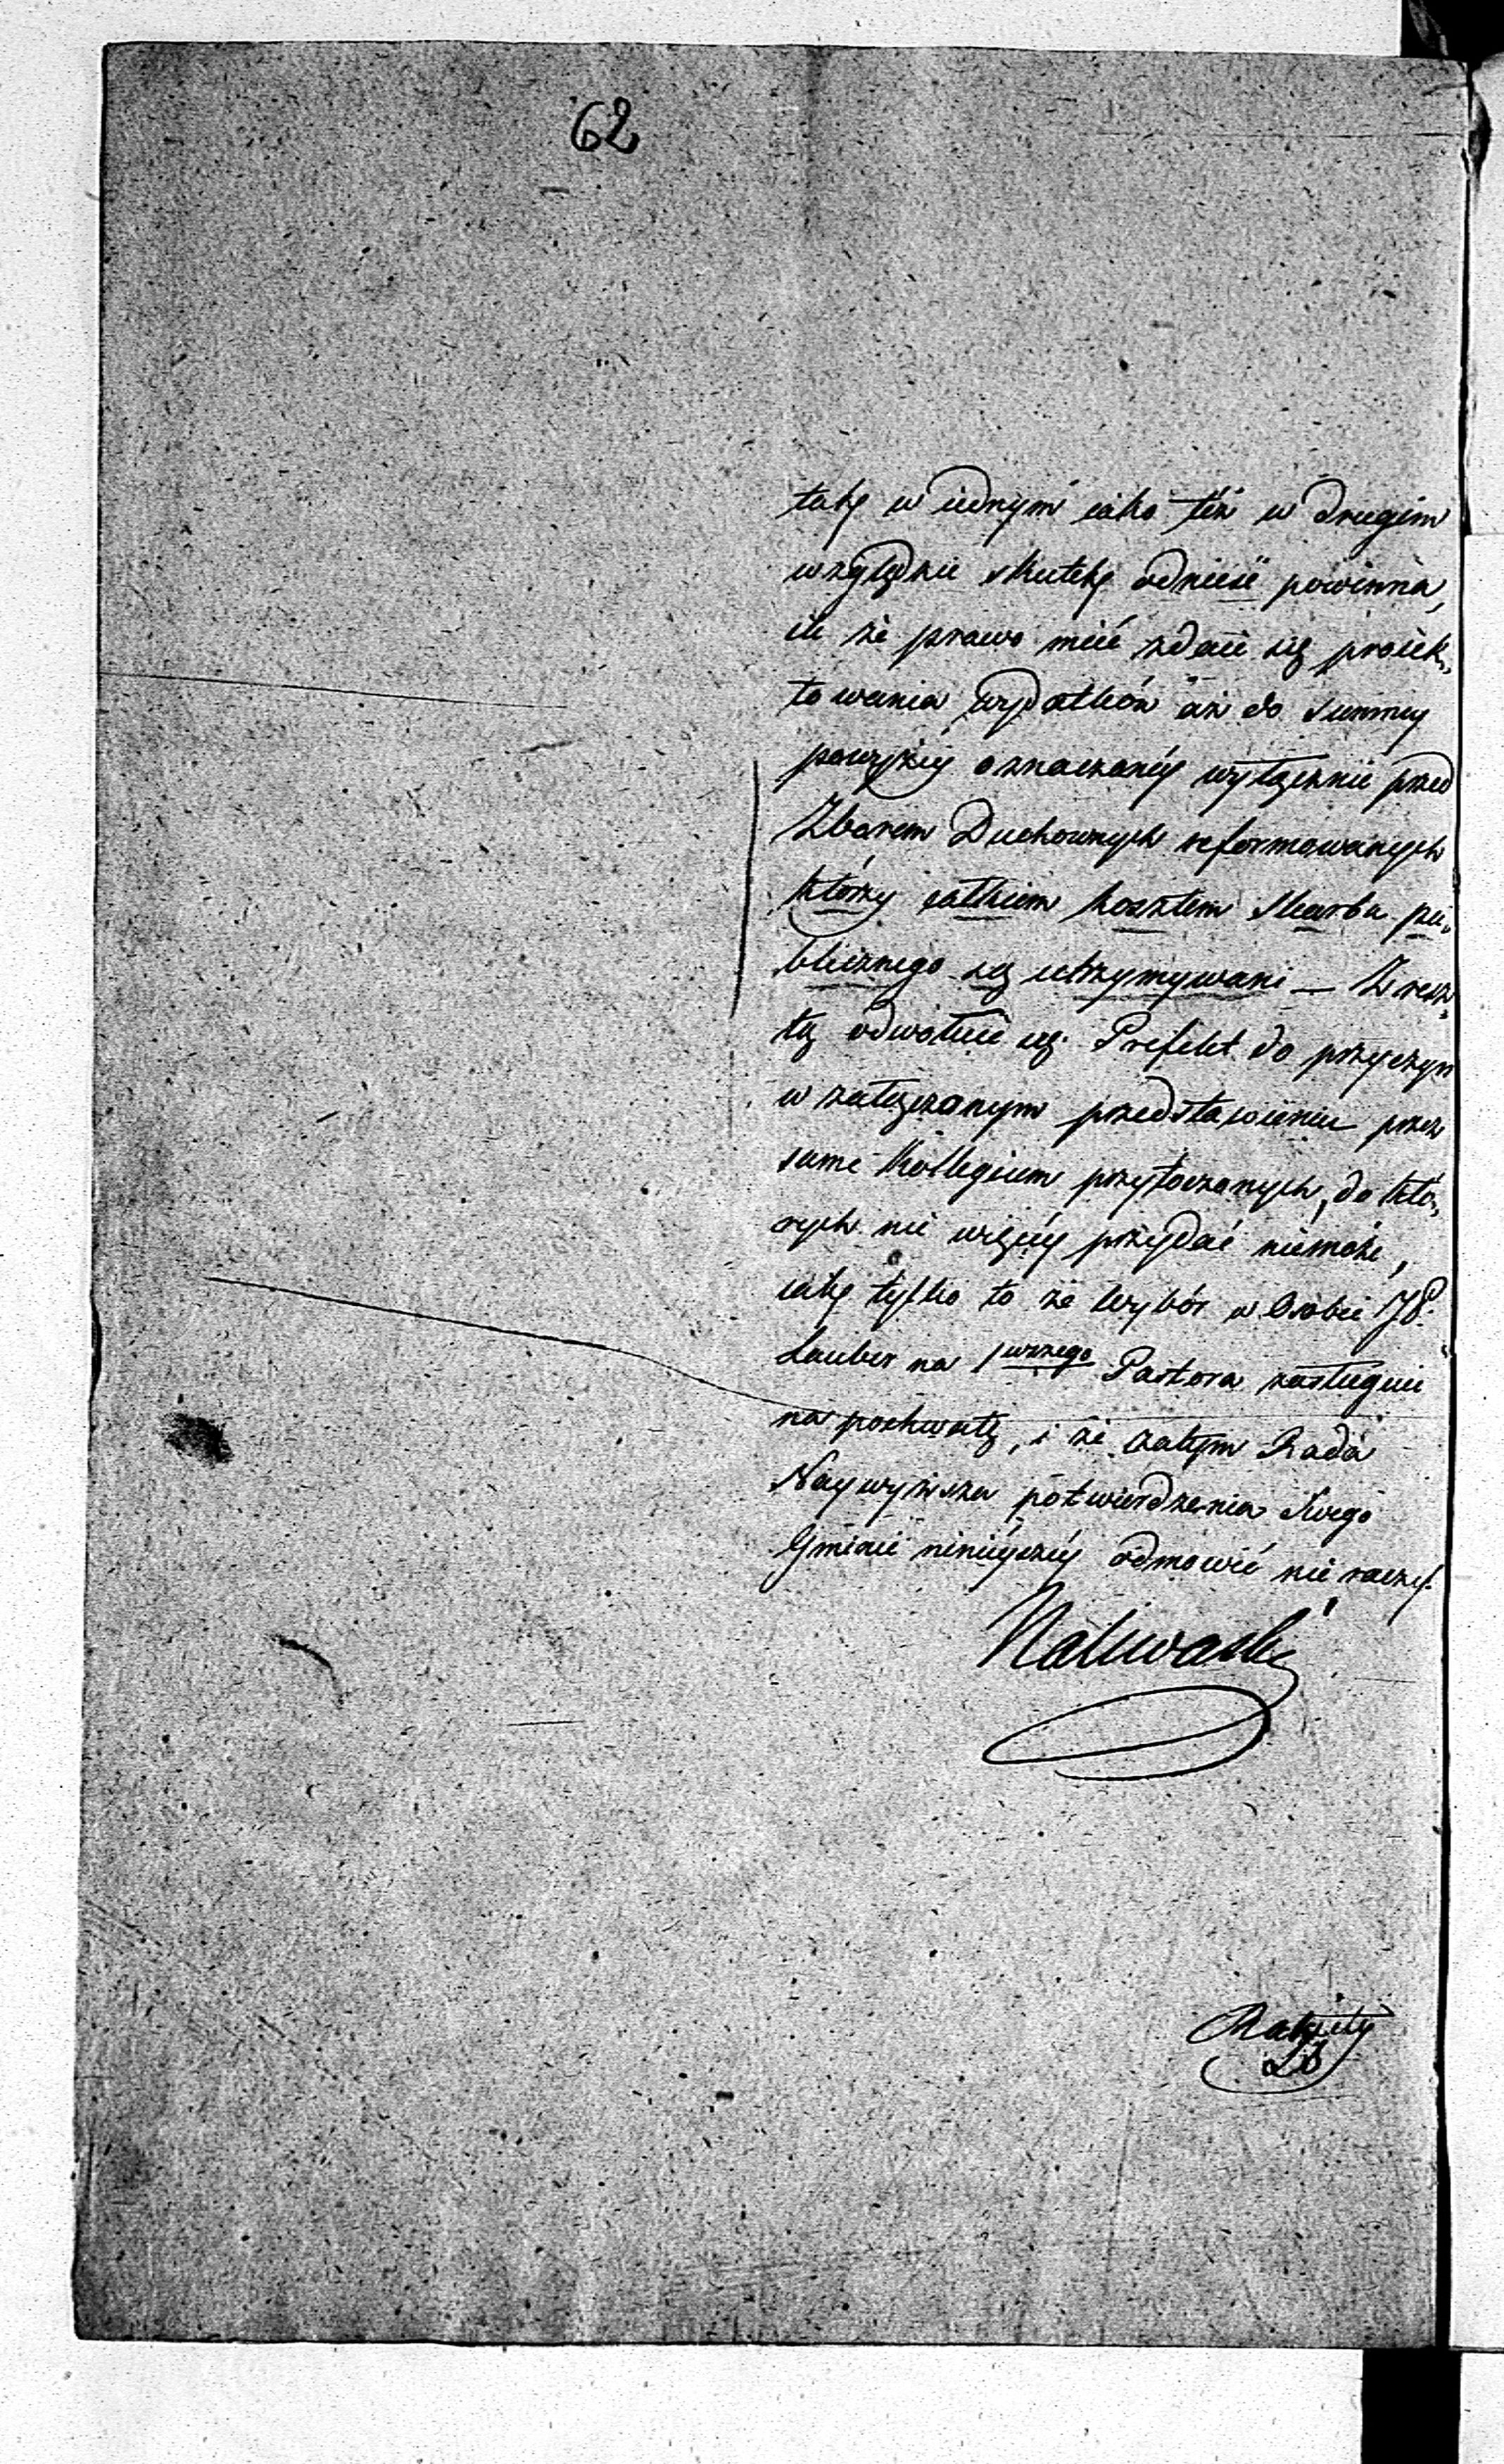 62
tak w iednym iako też w drugim
względzie skutek odnieść powinna,
ile że prawo mieć zdaie się proiek„
towania wydatków aż do summy
powyżéy oznaczonéy wyłącznie przed
Zborem Duchownych reformowanych
którzy całkiem kosztem Skarbu pu„
blicznego są utrzymywani — Zresz„
tą odwołuie się Prefekt do przyczyn
w załączonym przedstawieniu przez
same Kollegium przytoczonych, do któ„
rych nic więcéy przydać niemoże,
iak tylko to że wybór w Osobie JP.
Lauber na 1wszego Pastora zasługuie
na pochwałę, i że zatym Rada
Naywyższa potwierdzenia Swego
Gminie ninieyszéy odmowić nie raczy.
Nakwaski